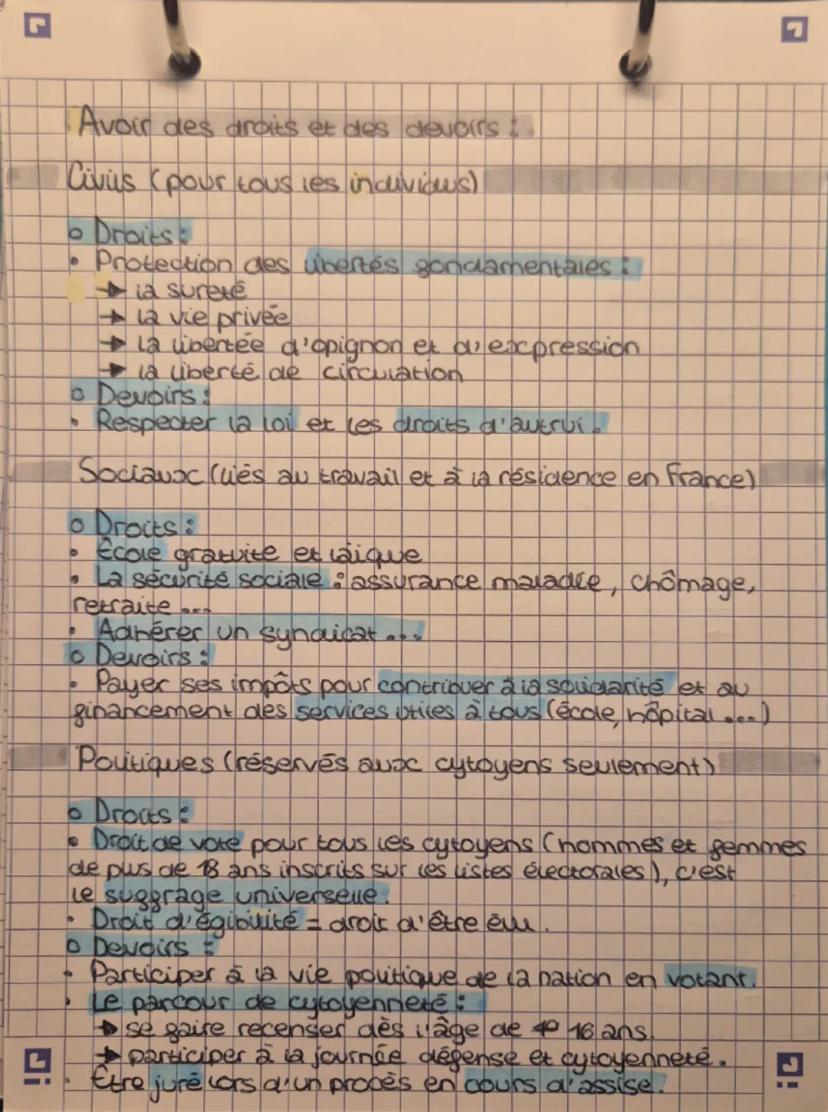 Avoir des droits et des devoirs :
Civils (pour tous les individus)
o Droits :
• Protection des libertés fondamentales :
→ la sureté
→ la vie privée
→ la libertée d'opignon et d'expression
→ la liberté de circulation
o Devoirs :
• Respecter la loi et les droits d'autrui.
Sociaux (liés au travail et à la résidence en France)
o Droits :
• École gratuite et laïque
• La sécurité sociale : assurance maladie, chômage,
retraite ...
• Adhérer un syndicat ...
o Devoirs :
• Payer ses impôts pour contribuer à la solidarité et au
financement des services utiles à tous (école, hôpital ...)
Politiques (réservés aux cytoyens seulement)
o Droits :
• Droit de vote pour tous les cytoyens (hommes et femmes
de plus de 18 ans inscrits sur les listes électorales), c'est
le suffrage universelle.
• Droit d'égibilité = droit d'être élu.
o Devoirs :
• Participer à la vie politique de la nation en votant.
• Le parcour de cytoyenneté :
→ se faire recenser dès l'âge de 16 ans.
→ participer à la journée défense et cytoyenneté.
• Être juré lors d'un procès en cours d'assise.